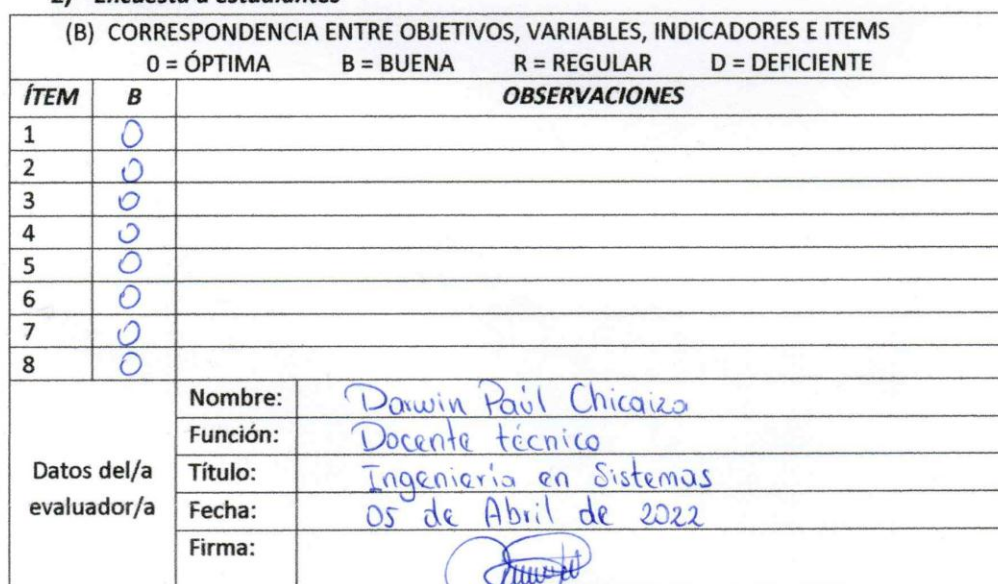 2) Encuesta a estudiantes
(B) CORRESPONDENCIA ENTRE OBJETIVOS, VARIABLES, INDICADORES E ITEMS
0 = ÓPTIMA B = BUENA R = REGULAR D = DEFICIENTE
ÍTEM B OBSERVACIONES
1 O
2 O
3 O
4 O
5 O
6 O
7 O
8 O
Datos del/a evaluador/a
Nombre: Darwin Paúl Chicaiza
Función: Docente técnico
Título: Ingeniería en Sistemas
Fecha: 05 de Abril de 2022
Firma: